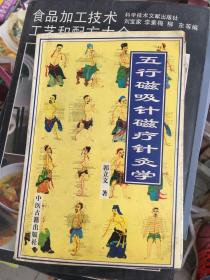 食品加工技术
工艺和配方大全
科学技术文献出版社
刘宝家 李素梅 柳 东等编
五行磁吸针磁疗针灸学
郭立文 著
中医古籍出版社